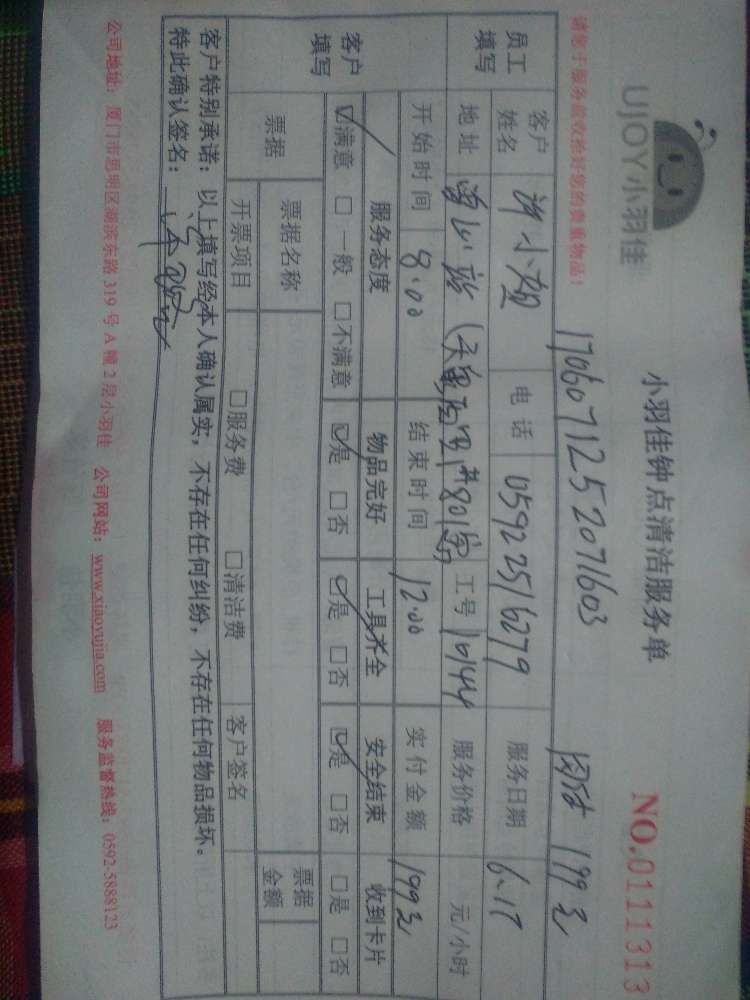 UJOY小羽佳
小羽佳钟点清洁服务单
NO.0111313
请您于服务前收拾好您的贵重物品!
1706071252071603
199元
员工填写
客户姓名 许小姐 电话 05922516279 服务日期 6.17
地址 801室 工号 10144 服务价格 元/小时
开始时间 8:00 结束时间 12:00 实付金额 199元
客户填写
服务态度 物品完好 工具齐全 安全结束 收到卡片
☑满意 □一般 □不满意 ☑是 □否 ☑是 □否 ☑是 □否 □是 □否
票据 票据名称 票据金额
开票项目 □服务费 □清洁费 客户签名
客户特别承诺:以上填写经本人确认属实,不存在任何纠纷,不存在任何物品损坏。
特此确认签名:
公司地址:厦门市思明区湖滨东路319号A幢2层小羽佳 公司网站:www.xiaoyujia.com 服务监督热线:0592-5888123